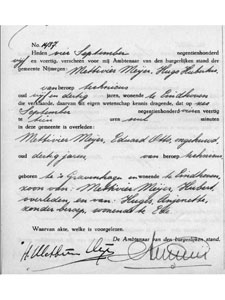 No. 1437
Heden vier September negentienhonderd
vijf en veertig, verscheen voor mij Ambtenaar van den burgerlijken stand der
gemeente Nijmegen: Methivier Meyer, Hugo Hubertus
van beroep technicus
oud vijf en dertig jaren, wonende te Eindhoven
die verklaarde, daarvan uit eigen wetenschap kennis dragende, dat op
September negentienhonderd vier en veertig
te uren minuten
in deze gemeente is overleden:
Methivier Meyer, Eduard Otto, ongehuwd,
oud dertig jaren, van beroep
geboren te 's Gravenhagen en wonende te Eindhoven,
zoon van: Methivier Meijer, Hubert,
overleden en van: Hugle, Anjenette,
zonder beroep, wonende te Ede.
Waarvan akte, welke is voorgelezen.
De Ambtenaar van den burgerlijken stand,